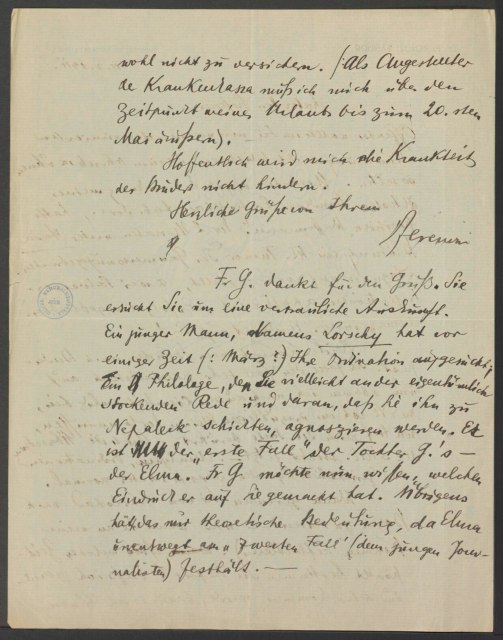 wohl nicht zu versichern. (: Als Angestellter
de Krankenkassa muß ich mich über den
Zeitpunkt meines Urlaubs bis zum 20. sten
Mai äußern). —
Hoffentlich wird mich die Krankheit
der Bruders nicht hindern.
Herzliche Grüße von Ihrem
Ferenczi
Fr G. dankt für den Gruß. Sie
ersucht Sie um eine vertrauliche Auskunft.
Ein junger Mann, Namens Lorschy hat vor
einiger Zeit (: März?) Ihre Ordination aufgesucht;
Ein Philologe, den Sie vielleicht an der eigentümlich
stockenden Rede und daran, daß Sie ihn zu
Nepaleck schickten, agnoszieren werden. Er
ist der „erste Fall" der Tochter G. s —
der Elma. Fr G möchte nun wissen, welchen
Eindruck er auf Sie gemacht hat. Übrigens
hat das nur theoretische Bedeutung, da Elma
unentwegt am „zweiten Fall' (dem jungen Jour-
nalisten) festhält. —